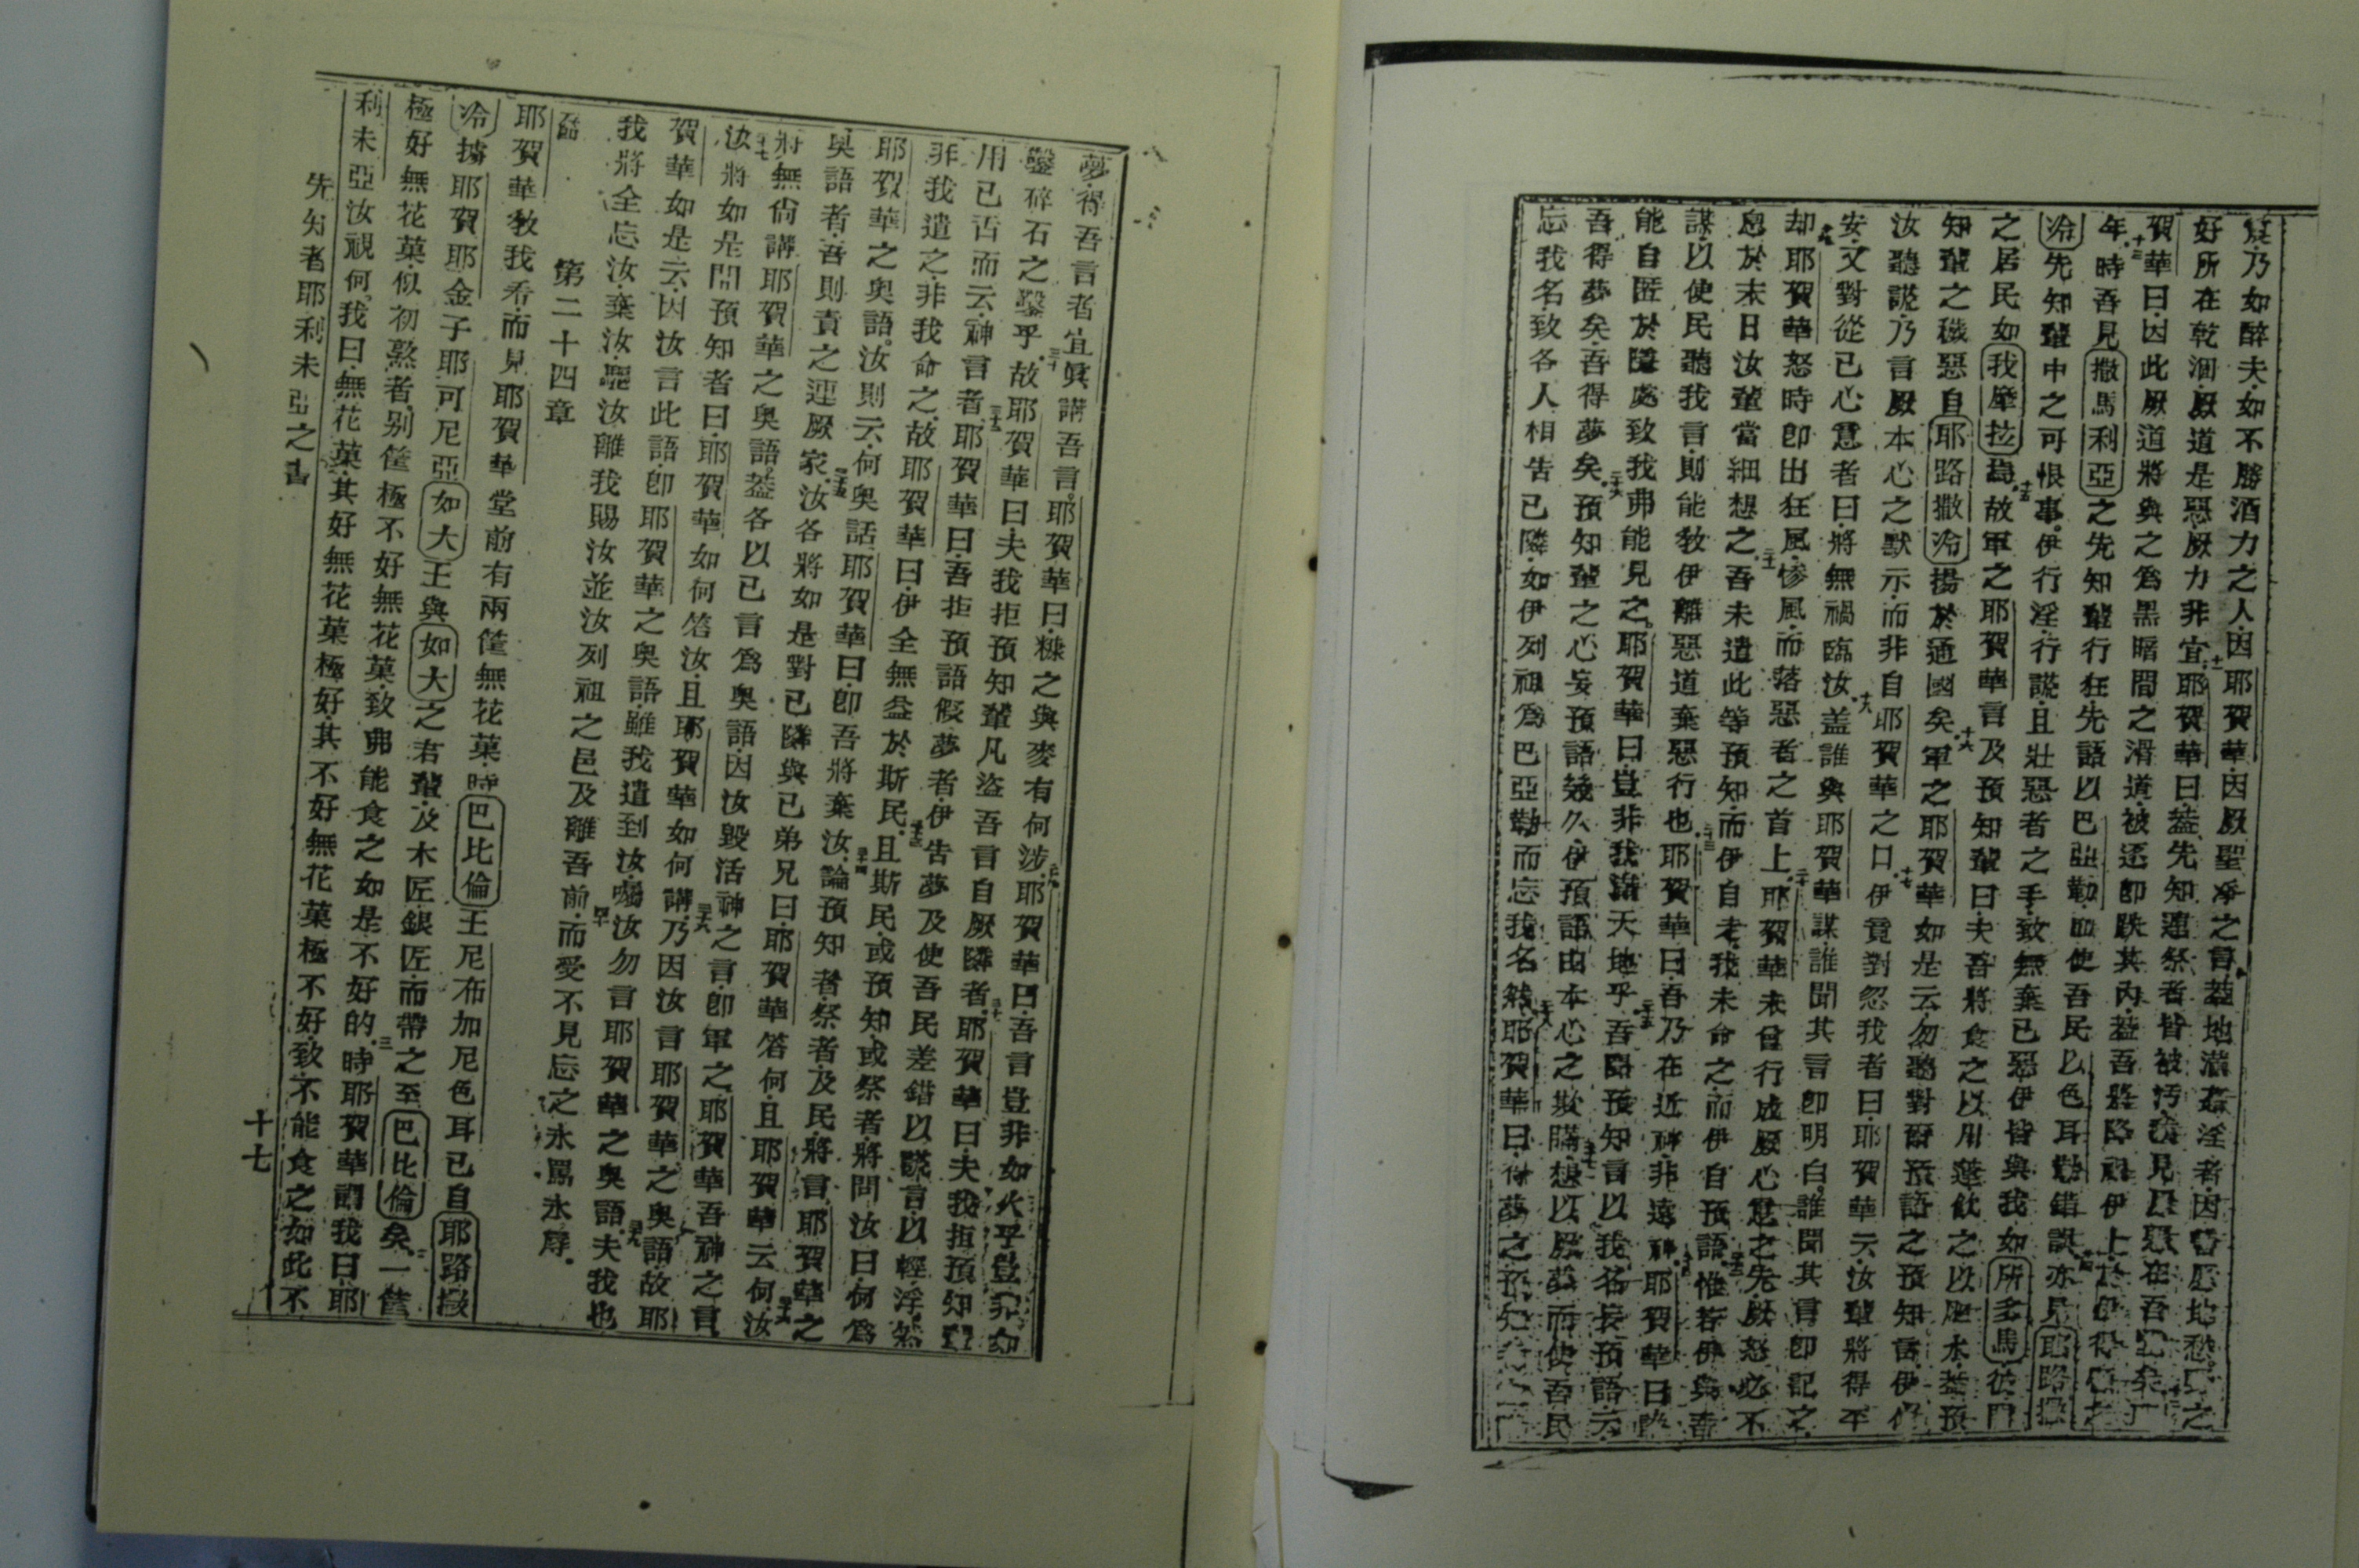 乃如醉夫·如不勝酒力之人·因耶賀華·因厥聖淨之言·蓋地滿姦淫者·因
好所在乾涸·厥道是惡·厥力非宜·耶賀華曰·蓋先知連祭者皆被污·見惡在吾
賀華曰·因此厥道將與之為黑暗間之滑道·被逐卽跌其內·蓋吾將降禍伊上
年·時吾見撒馬利亞之先知輩行狂·先語以巴亞勒·而使吾民以色耳勒錯誤·亦見耶路撒
冷先知輩中之可恨事·伊行淫·行謊·且壯惡者之手·致無棄己惡·伊皆與我如所多馬·從
之居民如我摩拉焉·故軍之耶賀華言及預知輩曰·夫吾將食之以用蓬·飲之以胆水·蓋預
知輩之穢惡自耶路撒冷揚於通國矣·軍之耶賀華如是云·勿聽對爾預語之預知言·伊
汝聽謊·乃言厥本心之默示·而非自耶賀華之口·伊竟對忽我者曰·耶賀華云·汝輩將得平
安·又對從己心意者曰·將無禍臨汝·蓋誰與耶賀華謀·誰聞其言卽明白·誰聞其言卽記之·
却耶賀華怒時卽出狂風·慘風·而落惡者之首上·耶賀華未曾行成厥心意之先·厥怒必不
息·於末日汝輩當細想之·吾未遣此等預知·而伊自走·我未命之·而伊自預語·惟若伊與吾
謀·以使民聽我言·則能敎伊離惡道棄惡行也·耶賀華曰·吾乃在近神·非遠神·耶賀華曰·
能自匿於隱處致我弗能見之·耶賀華曰·豈非我滿天地乎·吾聞預知言以我名妄預語云·
吾得夢矣·吾得夢矣·預知輩之心妄預語幾久·伊預語由本心之欺瞞·想以厥夢而使吾民
忘我名·致各人相告己隣·如伊列祖為巴亞勒而忘我名然·耶賀華曰·得夢之預知
夢·得吾言者宜眞講吾言·耶賀華曰·糠之與麥有何涉·耶賀華曰·吾言豈非如火乎·豈非如
鑿碎石之鑿乎·故耶賀華曰·夫我拒預知輩凡盜吾言自厥隣者·耶賀華曰·夫我拒預知輩
用己舌而云·神言者·耶賀華曰·吾拒預語假夢者·伊告夢及使吾民差錯以謊言·以輕浮·然
非我遣之·非我命之·故耶賀華曰·伊全無益於斯民·且斯民·或預知·或祭者·將問汝曰·何為
耶賀華之奧語·汝則云·何奧話·耶賀華曰·卽吾將棄汝·論預知者·祭者·及民·將言·耶賀華之
奧語者·吾則責之連厥家·汝各將如是對己隣與己弟兄曰·耶賀華答何·且耶賀華云何·汝
將無尙講耶賀華之奧語·蓋各以己言為奧語·因汝毀活神之言·卽軍之耶賀華吾神之言
汝將如是問預知者曰·耶賀華如何答汝·且耶賀華如何講·乃因汝言耶賀華之奧語·故耶
賀華如是云·因汝言此語·卽耶賀華之奧語·雖我遣到汝·囑汝勿言耶賀華之奧語·夫我也
我將全忘汝·棄汝·離汝離我賜汝並汝列祖之邑及離吾前·而受不見忘之永罵永辱·
第二十四章
耶賀華敎我看·而見耶賀華堂前有兩筐無花菓·時巴比倫王尼布加尼色耳已自耶路撒
冷擄耶賀耶金子耶可尼亞如大王與如大之君輩·及木匠·銀匠·而帶之至巴比倫矣·一筐
極好無花菓·似初熟者·别筐極不好無花菓·致弗能食之如是不好的·時耶賀華謂我曰·耶
利未亞汝視何·我曰·無花菓·其好無花菓極好·其不好無花菓極不好·致不能食之如此不
先知者耶利未亞之書
十七